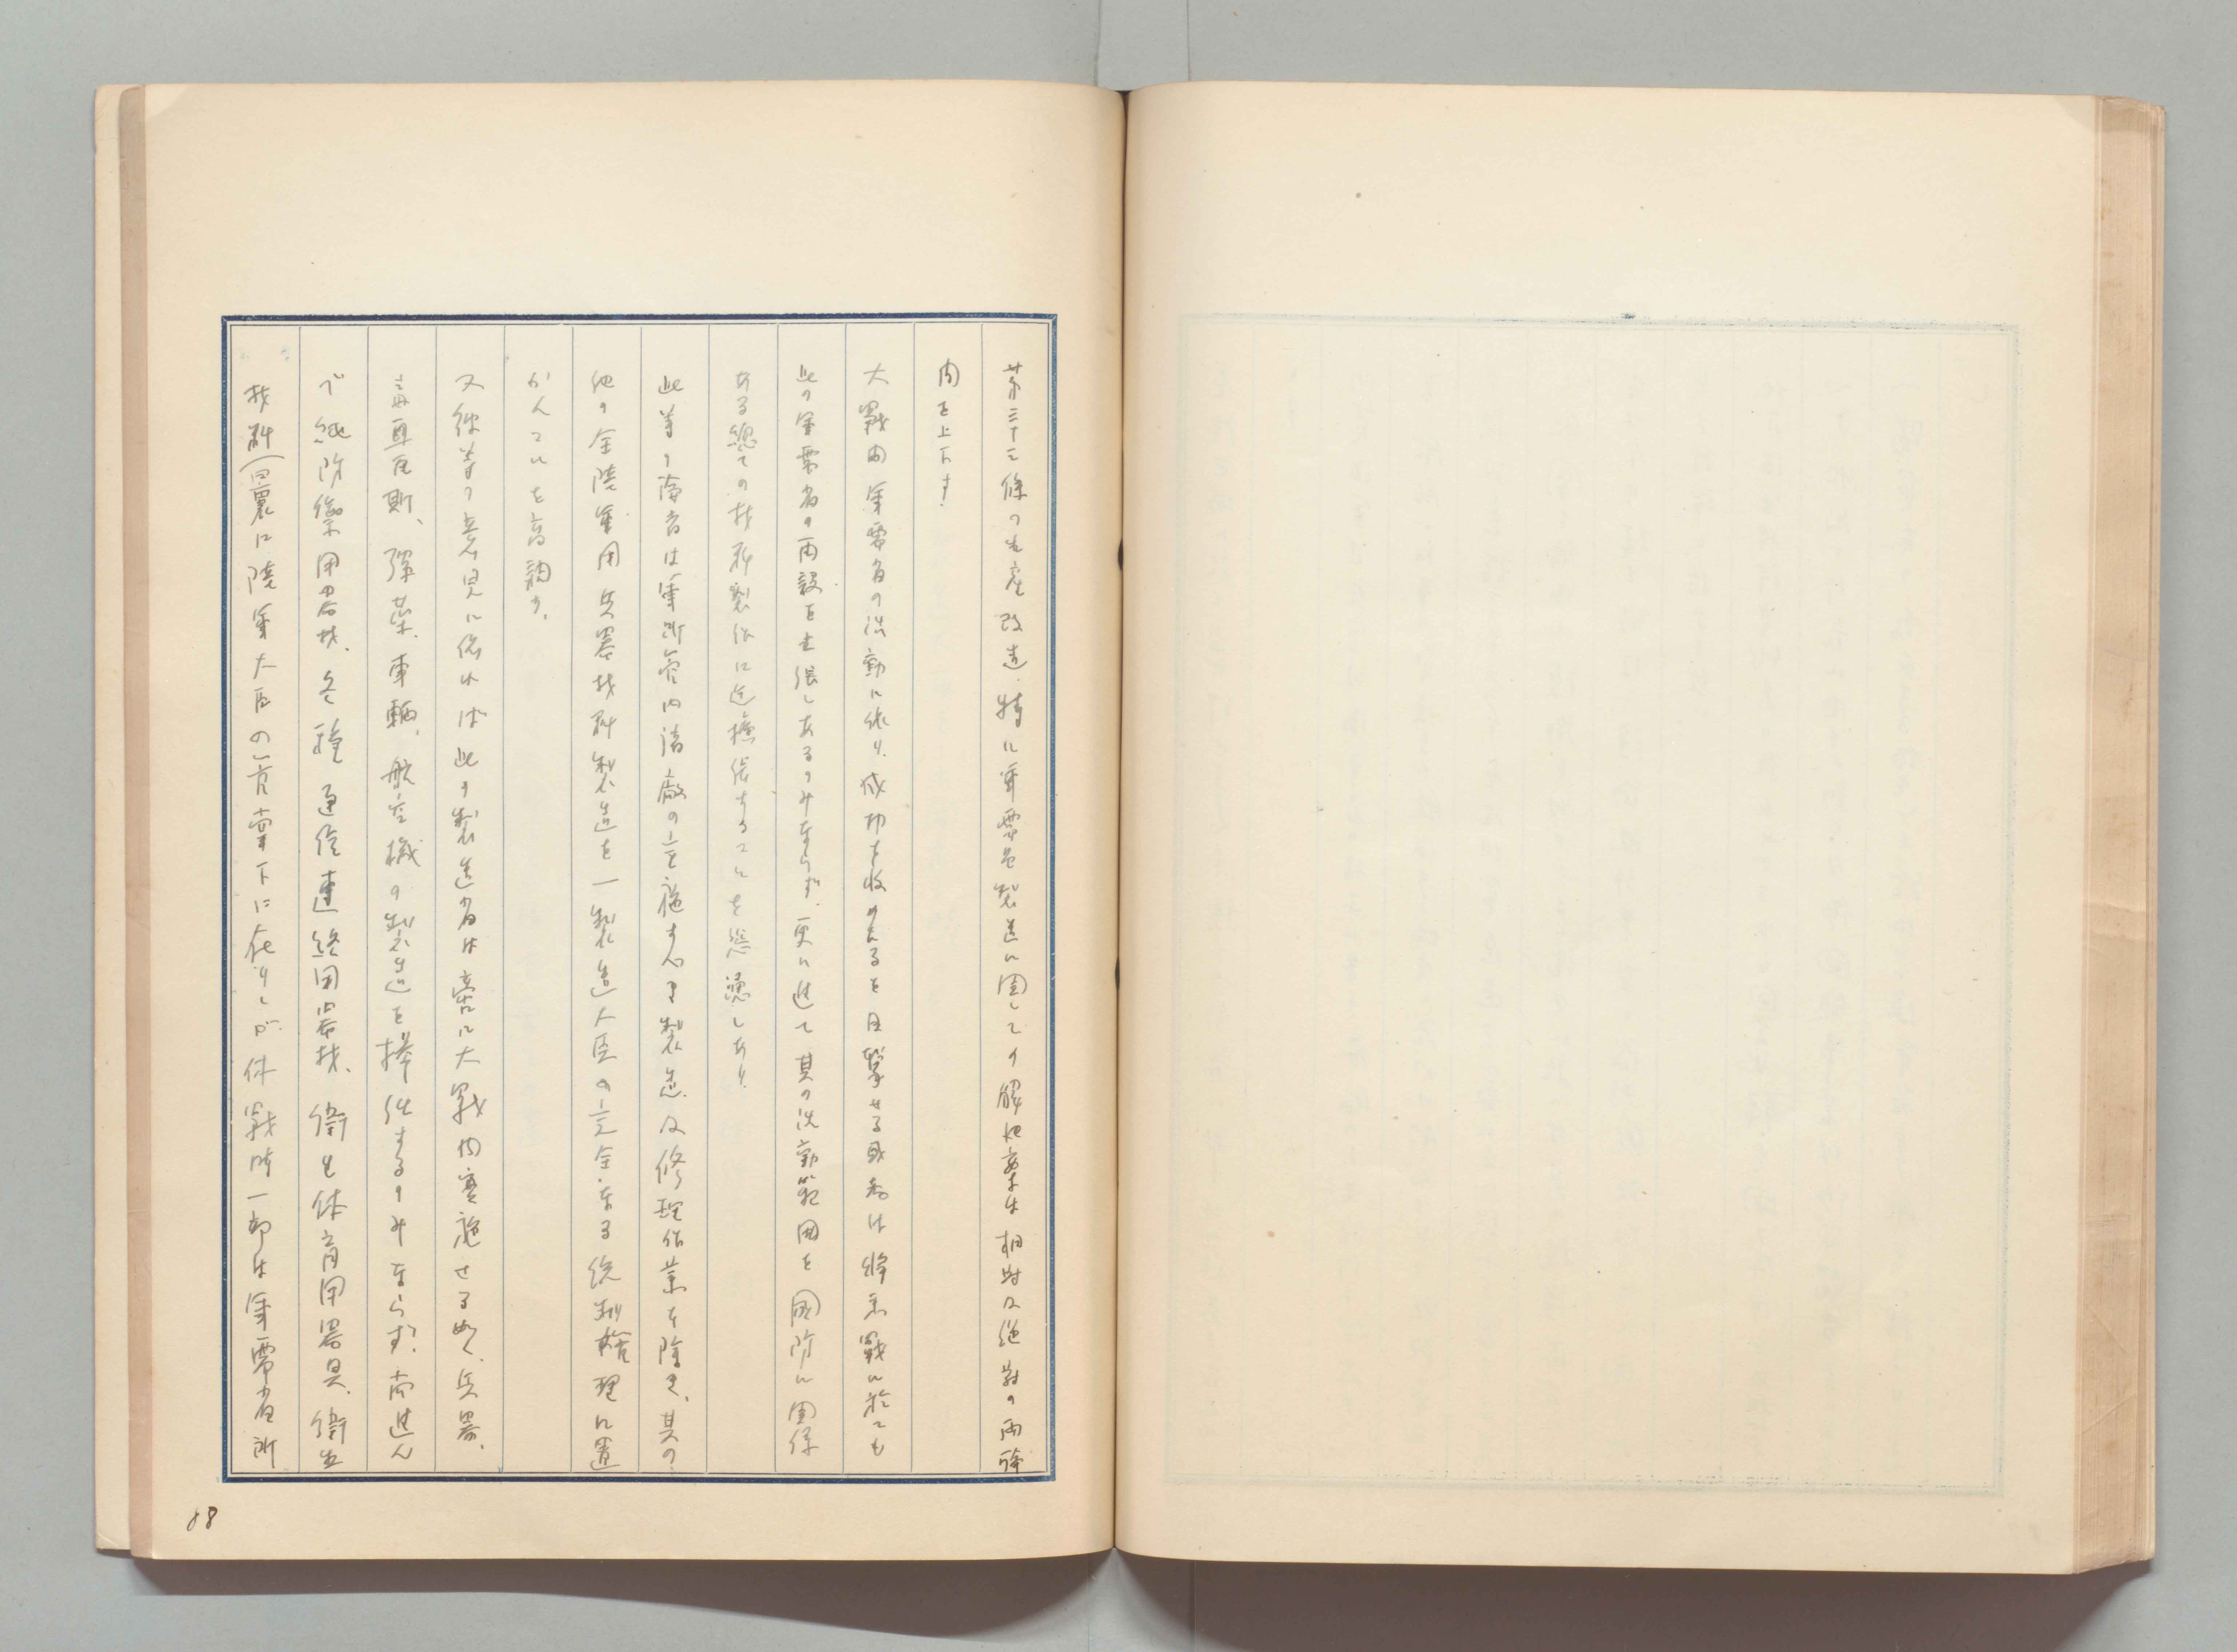 第三十三條の生産改造、特に軍需品製造に関しての解決案は相対及絶対の両端
間を上下す。
大戰間軍需省の活動に依り、成功を收めたるを目撃せる國民は将来戰に於ても
此の軍需省の再設を主張しあるのみならず、更に進て其の活動範囲を國防に関係
ある總ての材料製作に迄擴張することを慫慂しあり。
此等の論者は軍所管内諸廠の施す製造及修理作業を除き、其の
他の全陸軍用兵器材料製造を一製造大臣の完全なる統制管理に置
かんことを高調す。
又彼等の意見に依れば此の製造省は啻に大戰間実施せる如く、兵器、
毒瓦斯、弾薬、車輌、航空機の製造を擔任するのみならず、尚進ん
で絶防禦用器材、各種通信連絡用器材、衛生体育用器具、衛生
材料(曩に陸軍大臣の管掌下に在りしが休戰時一部は軍需省所
88